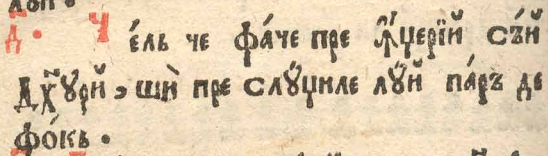 д҃. Че́ль че фа́че пре ꙟ҆́џерїй съ́й
дх҃ꙋрй, шѝ пре слꙋ́џиле лꙋ́й па́ръ де
фо́кь.